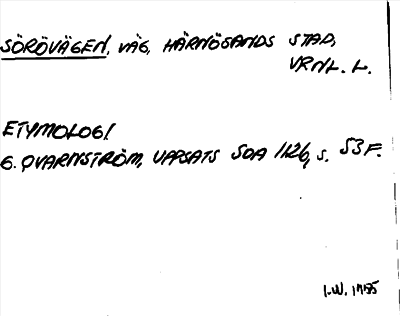 SÖRÖVÄGEN, VÄG, HÄRNÖSANDS STAD,
VRNL. L.
ETYMOLOGI
G. QVARNSTRÖM, UPPSATS SOA 1126, S. 53 F.
I.W. 1985